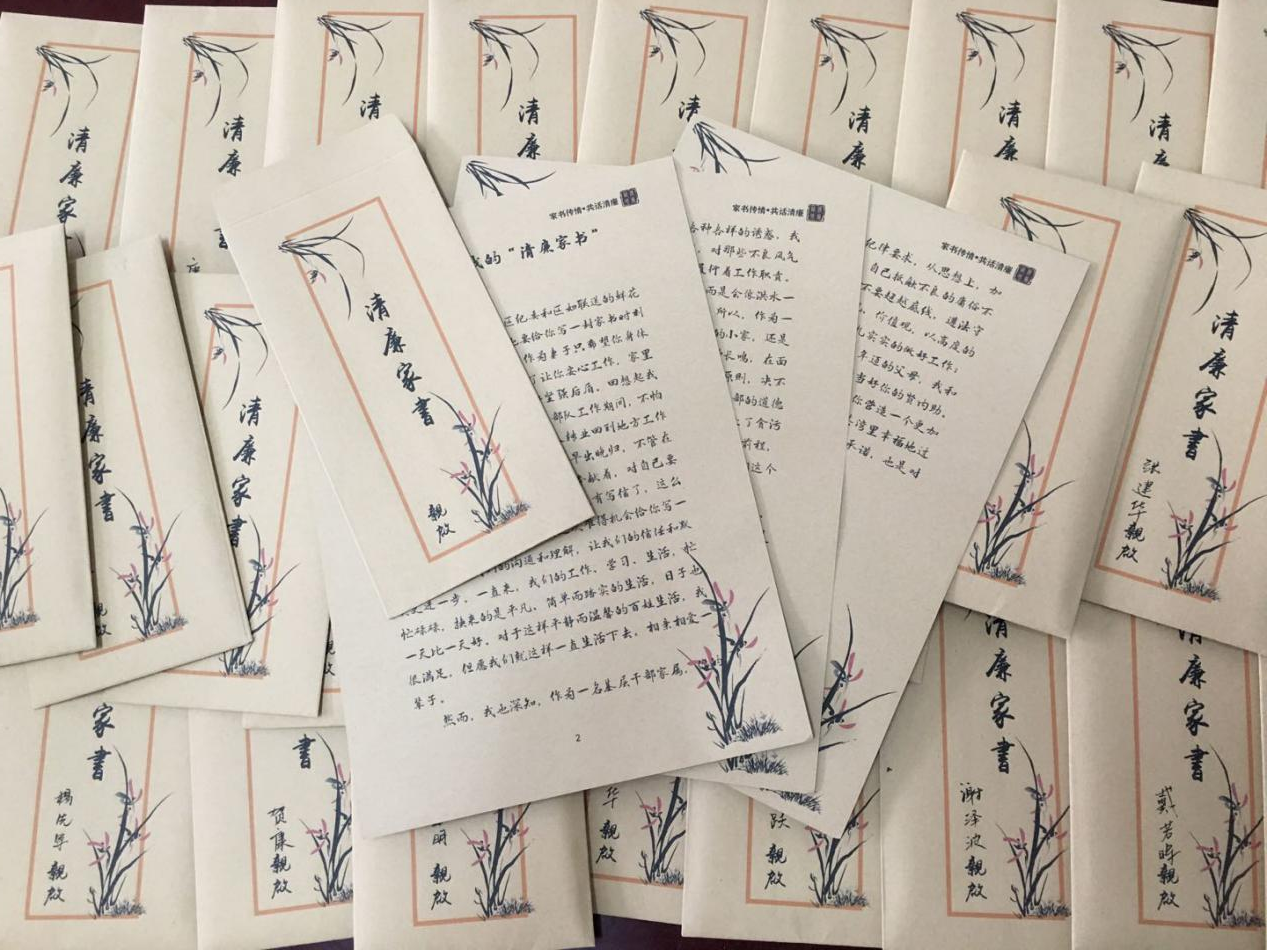 清廉
清廉
清
清廉
清
清廉
清廉
清
清廉家
清廉家書
親啟
清廉家書
清廉家書
清廉家書
张建华親啟
家书传情·共话清廉
我的“清廉家书”
区纪委和区妇联送的鲜花
要给你写一封家书时刻
作为妻子只希望你身体
了让你安心工作,家里
坚强后盾,回想起我
部队工作期间,不怕
转业回到地方工作
早出晚归,不管在
献着,对自己要
有写信了,这么
难得机会给你写一
的沟通和理解,让我们的信任和默
更进一步。一直来,我们的工作、学习、生活,忙
忙碌碌,换来的是平凡、简单而踏实的生活,日子也
一天比一天好。对于这样平静而温馨的百姓生活,我
很满足,但愿我们就这样一直生活下去,相亲相爱一
辈子。
然而,我也深知,作为一名基层干部家属,
2
家书传情·共话清廉
各种各样的诱惑,我
对那些不良风气
履行着工作职责。
而是会像洪水一
所以,作为一
的小家,还是
长鸣,在面
原则,决不
部的道德
了贪污
前程,
这个
家书传情·共话清廉
纪律要求,从思想上,加
自己抵触不良的庸俗不
不要超越底线,遵法守
、价值观,以高度的
扎实实的做好工作;
年迈的父母,我和
当好你的贤内助,
你营造一个更加
港湾里幸福地过
承诺,也是对
家書
親啟
書
贺集親啟
明 親啟
华 親啟
跃 親啟
清廉家書
谢泽波親啟
清廉家書
戴芳
親啟